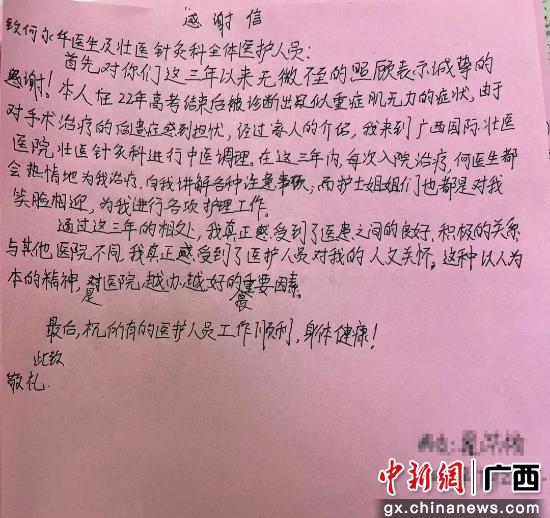 感谢信
致何永华医生及壮医针灸科全体医护人员:
首先对你们这三年以来无微不至的照顾表示诚挚的
感谢!本人在22年高考结束后被诊断出疑似重症肌无力的症状,由于
对手术治疗的后遗症感到担忧,经过家人的介绍,我来到广西国际壮医
医院壮医针灸科进行中医调理。在这三年内,每次入院治疗,何医生都
会热情地为我治疗,向我讲解各种注意事项;而护士姐姐们也都是对我
笑脸相迎,为我进行各项护理工作。
通过这三年的相处,我真正感受到了医患之间的良好、积极的关系
与其他医院不同,我真正感受到了医护人员对我的人文关怀。这种以人为
本的精神,是对医院越办越好的最重要因素
最后,祝所有的医护人员工作顺利,身体健康!
此致
敬礼.
中新網 广西
gx.chinanews.com